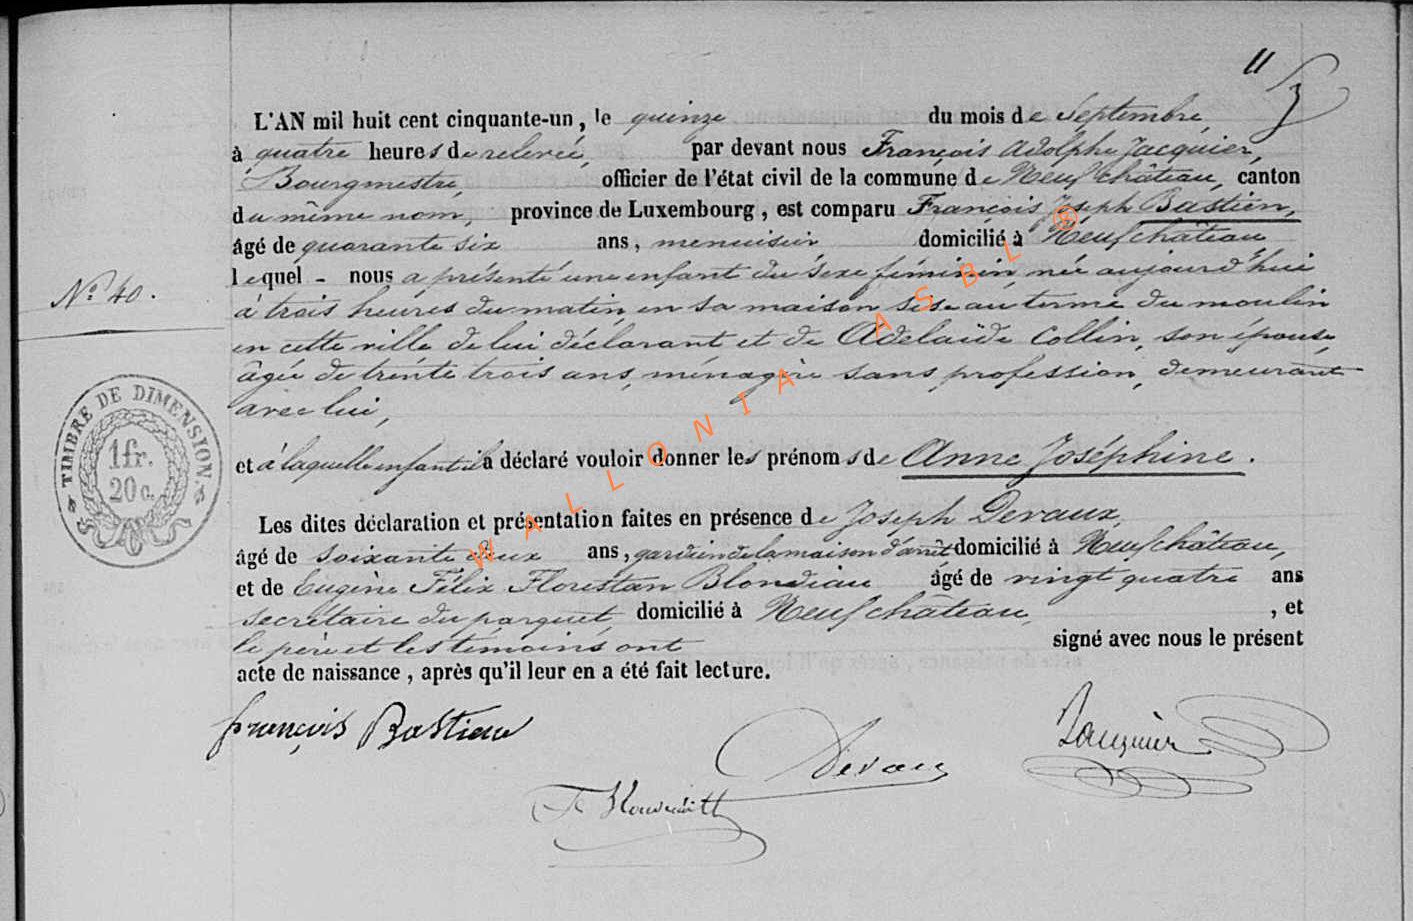 11
L'AN mil huit cent cinquante-un, le quinze du mois de Septembre,
à quatre heures de relevée, par devant nous François Adolphe Jacquier,
Bourgmestre, officier de l'état civil de la commune de Neufchâteau, canton
du même nom, province de Luxembourg, est comparu François Joseph Bastien,
âgé de quarante six ans, menuisier domicilié à Neufchâteau
lequel - nous a présenté une enfant du sexe féminin, née aujourd'hui
N° 40.
à trois heures du matin, en sa maison sise au terme du moulin
en cette ville de lui déclarant et de Adelaïde Collin, son épouse,
âgée de trente trois ans, ménagère sans profession, demeurant
avec lui,
et à laquelle enfant il a déclaré vouloir donner les prénoms de Anne Joséphine.
TIMBRE DE DIMENSION
1 fr.
20 c.
Les dites déclaration et présentation faites en présence de Joseph Devaux,
âgé de soixante deux ans, gardien de la maison d'arrêt domicilié à Neufchâteau,
et de Eugène Félix Florestan Blondiau âgé de vingt quatre ans
secrétaire du parquet, domicilié à Neufchâteau, , et
le père et les témoins ont signé avec nous le présent
acte de naissance, après qu'il leur en a été fait lecture.
françois Bastien
Devaux
Jacquier
WALLONIA ASBL ®